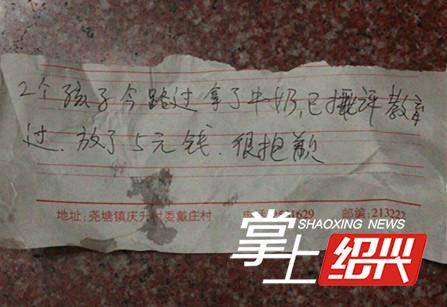 2个孩子今路过拿了牛奶,已批评教育
过.放了5元钱.很抱歉
地址:尧塘镇庆 村委戴庄村 1629 邮编:213222
SHAOXING NEWS
掌上绍兴